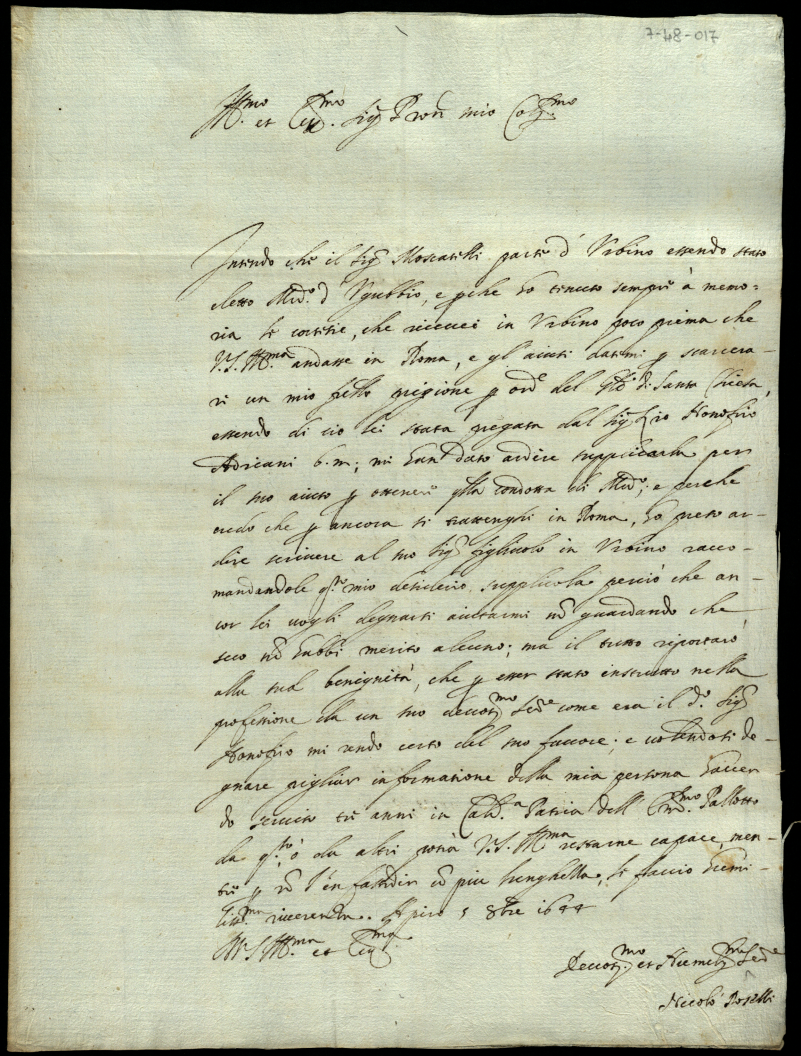 7-48-017
Ill.mo et Ecc.mo Sig.r Pron mio Coll.mo
Intendo che il Sig.r Moscatelli parte d'Urbino essendo stato
eletto Med.o d'Ugubbio, e p che ho tenuto sempre à memo-
ria le cortesie, che ricevei in Urbino poco prima che
V.S. Ill.ma andasse in Roma, e gl'aiuti datimi p scarcera-
re un mio fratello prigione p ord.e del di Santa Chiesa,
essendo di cio lei stata pregata dal Sig.r Honofrio
Adriani b.m; mi han dato ardire supplicarla per
il suo aiuto p ottenere q.lla condotta di Med.o; e perche
credo che p ancora si trattenghi in Roma, ho preso ar-
dire scrivere al suo Sig.r figliuolo in Urbino racco-
mandandole q.sto mio desiderio, supplicola perciò che an-
cor lei vogli degnarsi aiutarmi nõ guardando che
seco nõ habbi merito alcuno; ma il tutto riportarò
alla sua benignità, che p esser stato instrutto nella
professione da un suo devot.mo Ser.e come era il d.o Sig.r
Honofrio mi rendo certo del suo favore; e volendosi de-
gnare pigliar informatione della mia persona haven-
do servito tre anni in Cald.a Patria dell' Em.mo Pallotto
da q.sto, ò da altri potrà V.S. Ill.ma restarne capace, men-
tre p nõ l'infastidir cõ piu lunghezza, le faccio humi-
liss.ma riverenza. Apiro 5 8bre 1644
Di V.S. Ill.ma et Ecc.ma
Devot.mo et Humiliss.mo Ser.e
Nicolò Roselli